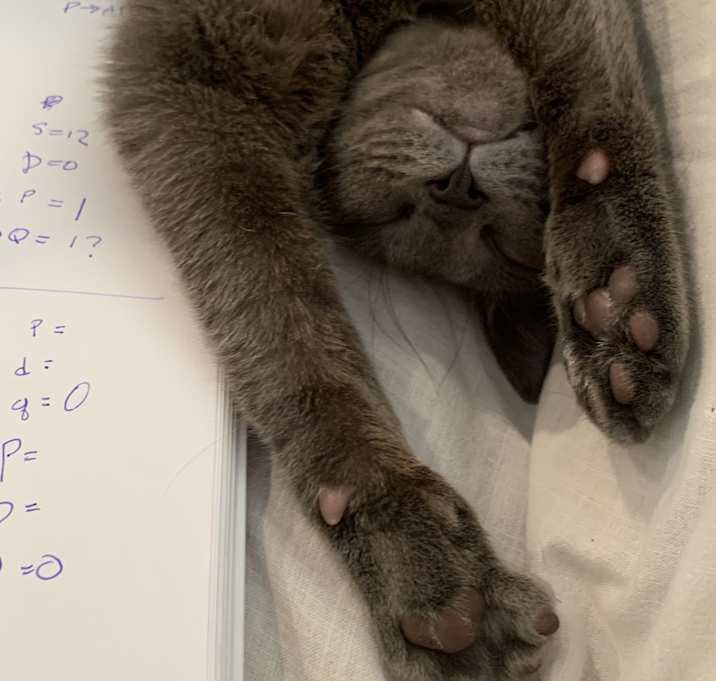 P→A
S=12
D=0
P=1
Q=1?
P=
d=
q=0
P=
=
=0